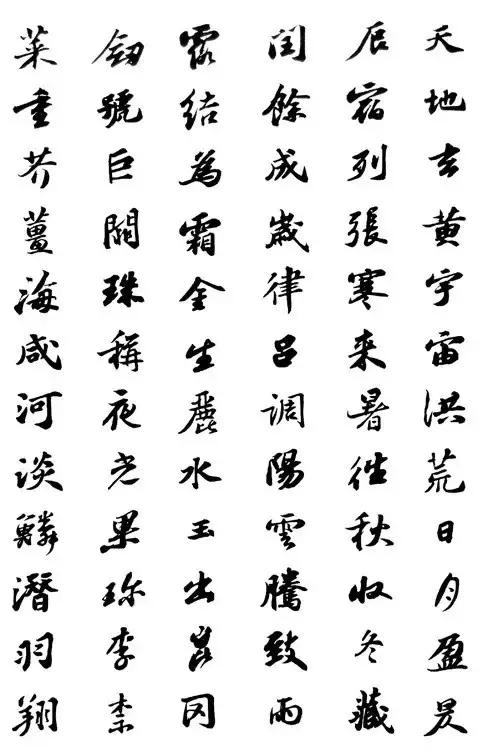 天地玄黄宇宙洪荒日月盈昃
辰宿列張寒来暑往秋收冬藏
閏餘成歲律呂調陽雲騰致雨
露結為霜金生麗水玉出崑岡
劍號巨闕珠稱夜光果珍李柰
菜重芥薑海咸河淡鱗潛羽翔